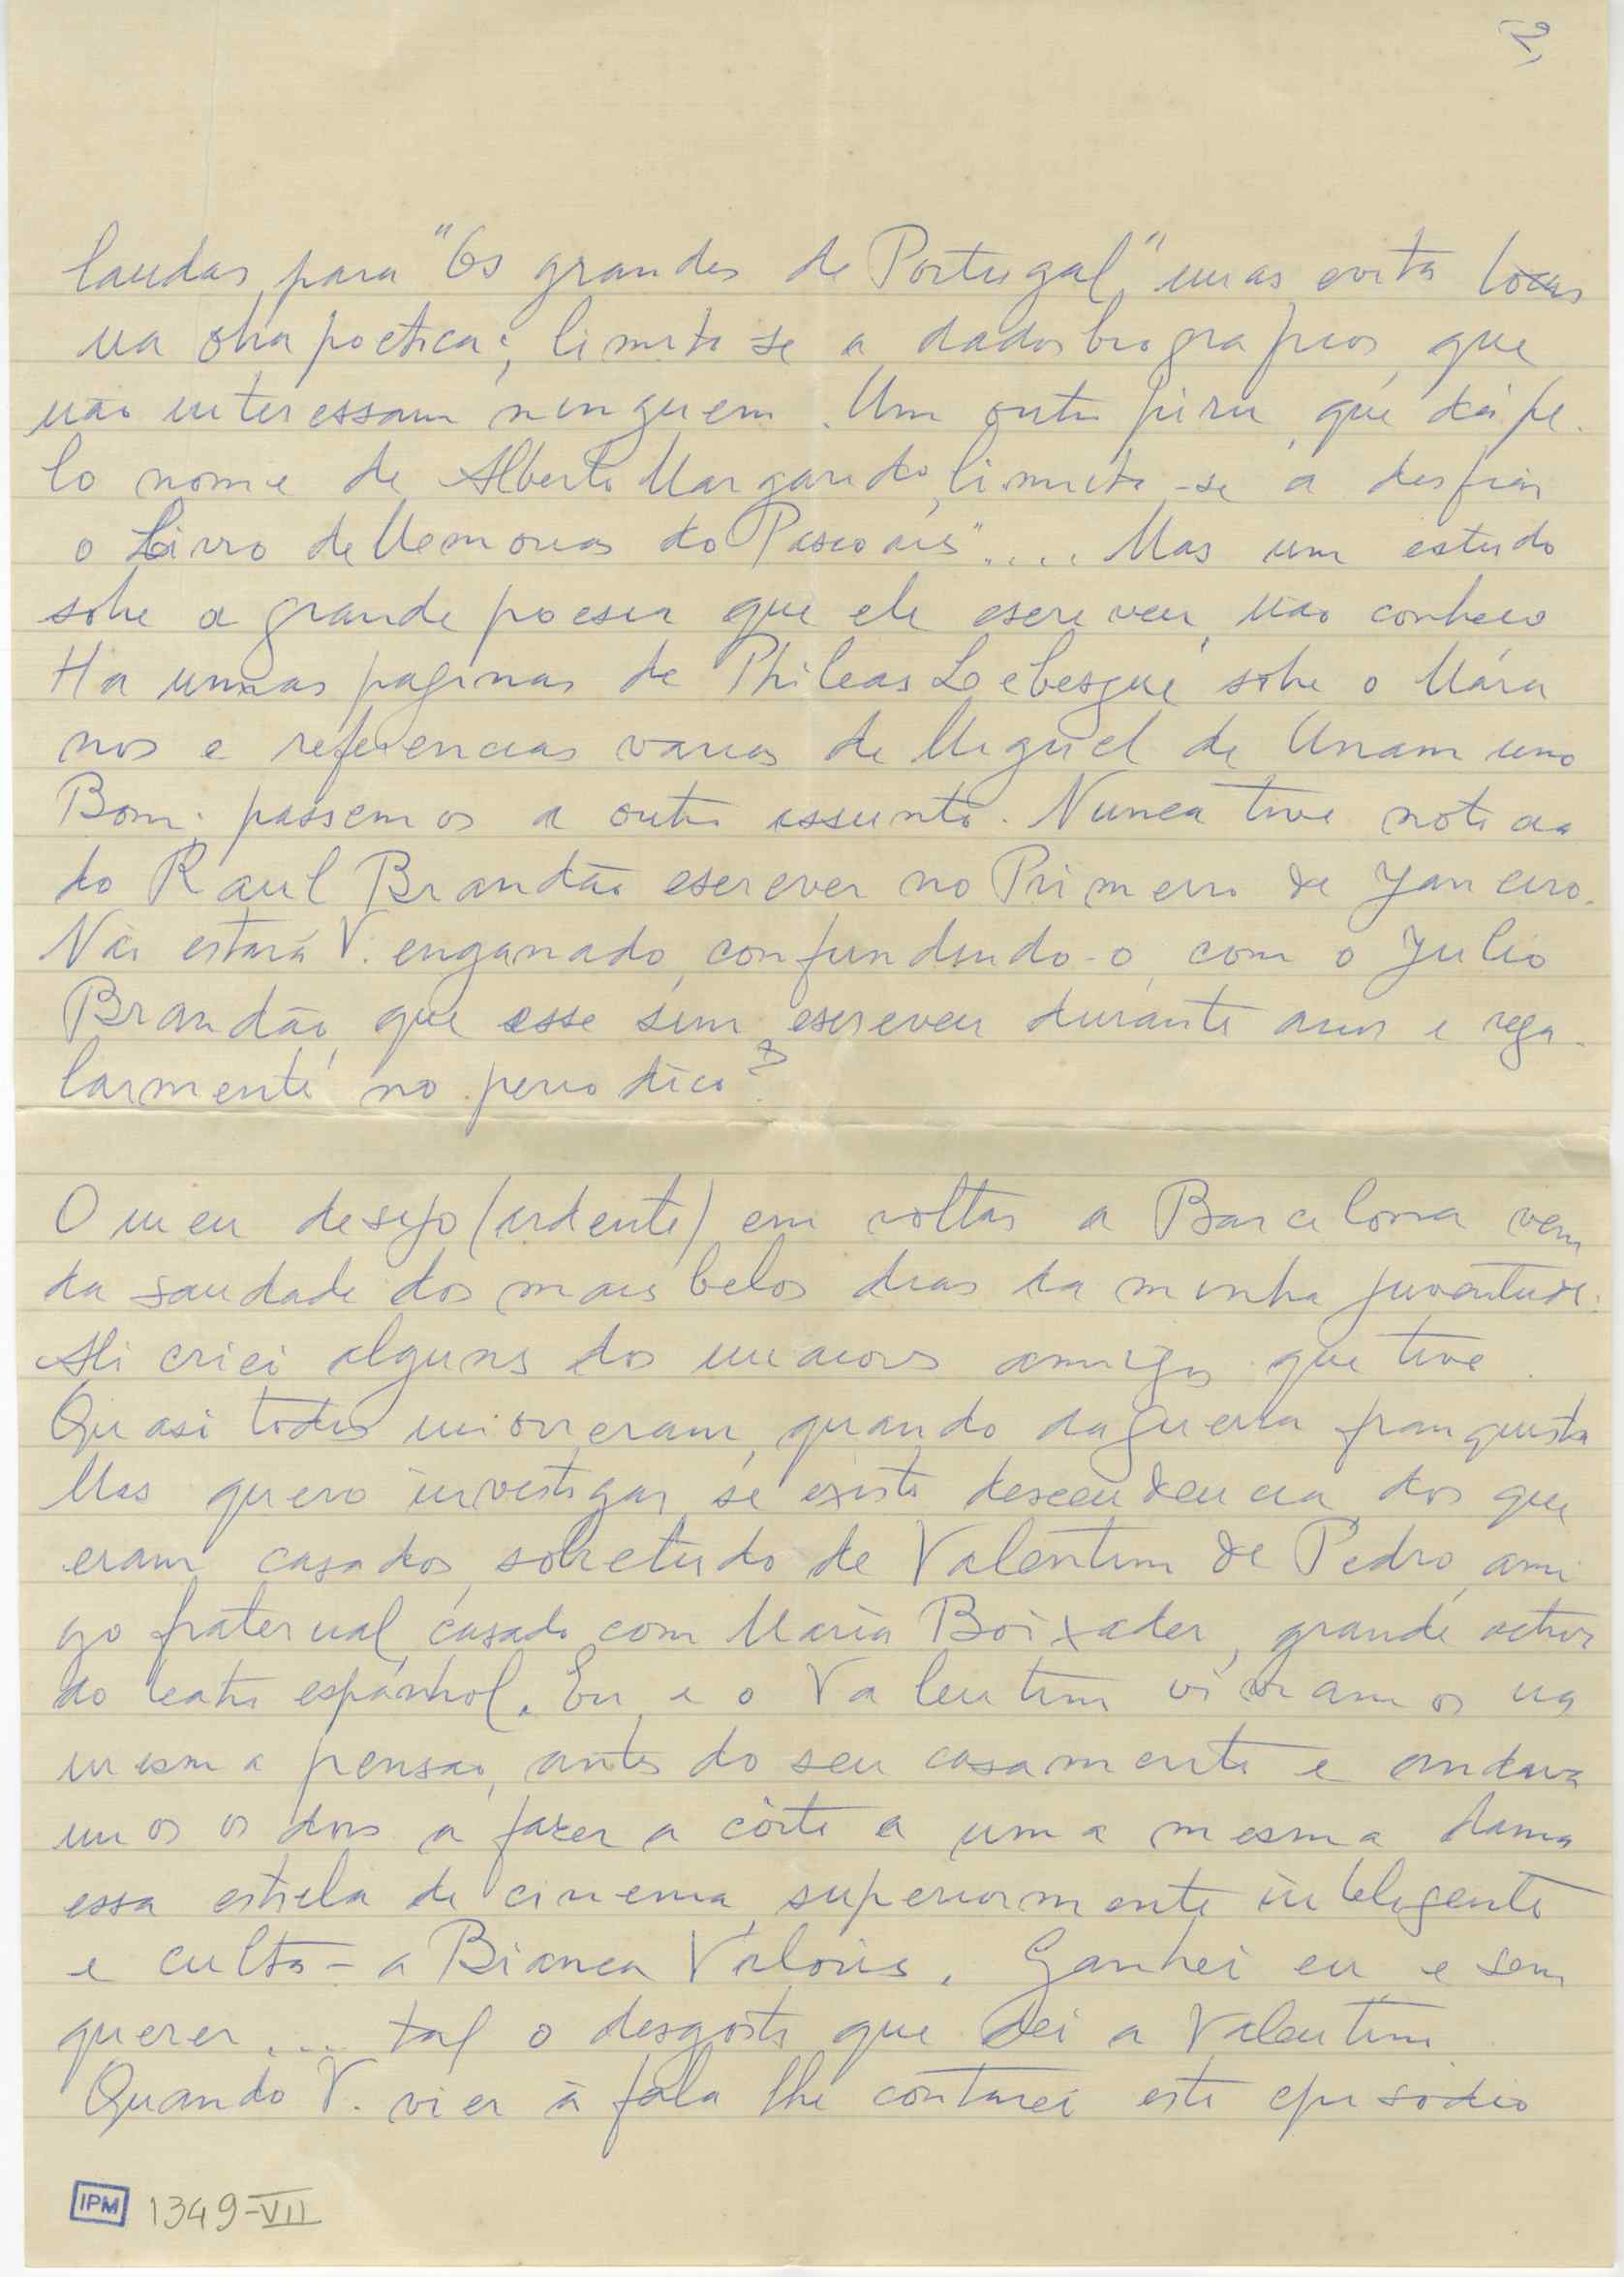 2)
laudas, para "Os grandes de Portugal", mas evita tocar
na obra poetica; limita-se a dados biograficos, que
não interessam ninguem. Um outro piru, que dá pe-
lo nome de Alberto Margarido, limita-se a desfiar
o Livro de Memorias do Pascoais".... Mas um estudo
sobre a grande poesia que ele escreveu, não conheço
Ha umas paginas de Phileas Lebesgue sobre o Mára
nos e referencias varias de Miguel de Unamuno
Bom: passemos a outro assunto. Nunca tive noticia
do Raul Brandão escrever no Primeiro de Janeiro.
Não estará V. enganado, confundindo-o, com o Julio
Brandão, que esse sim, escreveu durante anos e regu-
larmente no periodico?
O meu desejo (ardente) em voltar a Barcelona vem
da saudade dos mais belos dias da minha juventude.
Ali criei alguns dos maiores amigos que tive.
Quasi todos morreram, quando da guerra franquista
Mas quero investigar se existe descendencia dos que
eram casados, sobretudo de Valentim de Pedro, ami
go fraternal, casado com Maria Boixader, grande actriz
do teatro espanhol. Eu e o Valentim viviamos na
mesma pensão, antes do seu casamento e andava
mos os dois a fazer a côrte a uma mesma dama
essa estrela de cinema, superiormente inteligente
e culta - a Bianca Valoris. Ganhei eu e sem
querer.... tal o desgosto que dei a Valentim.
Quando V. vier à fala lhe contarei este episodio
IPM 1349-VII